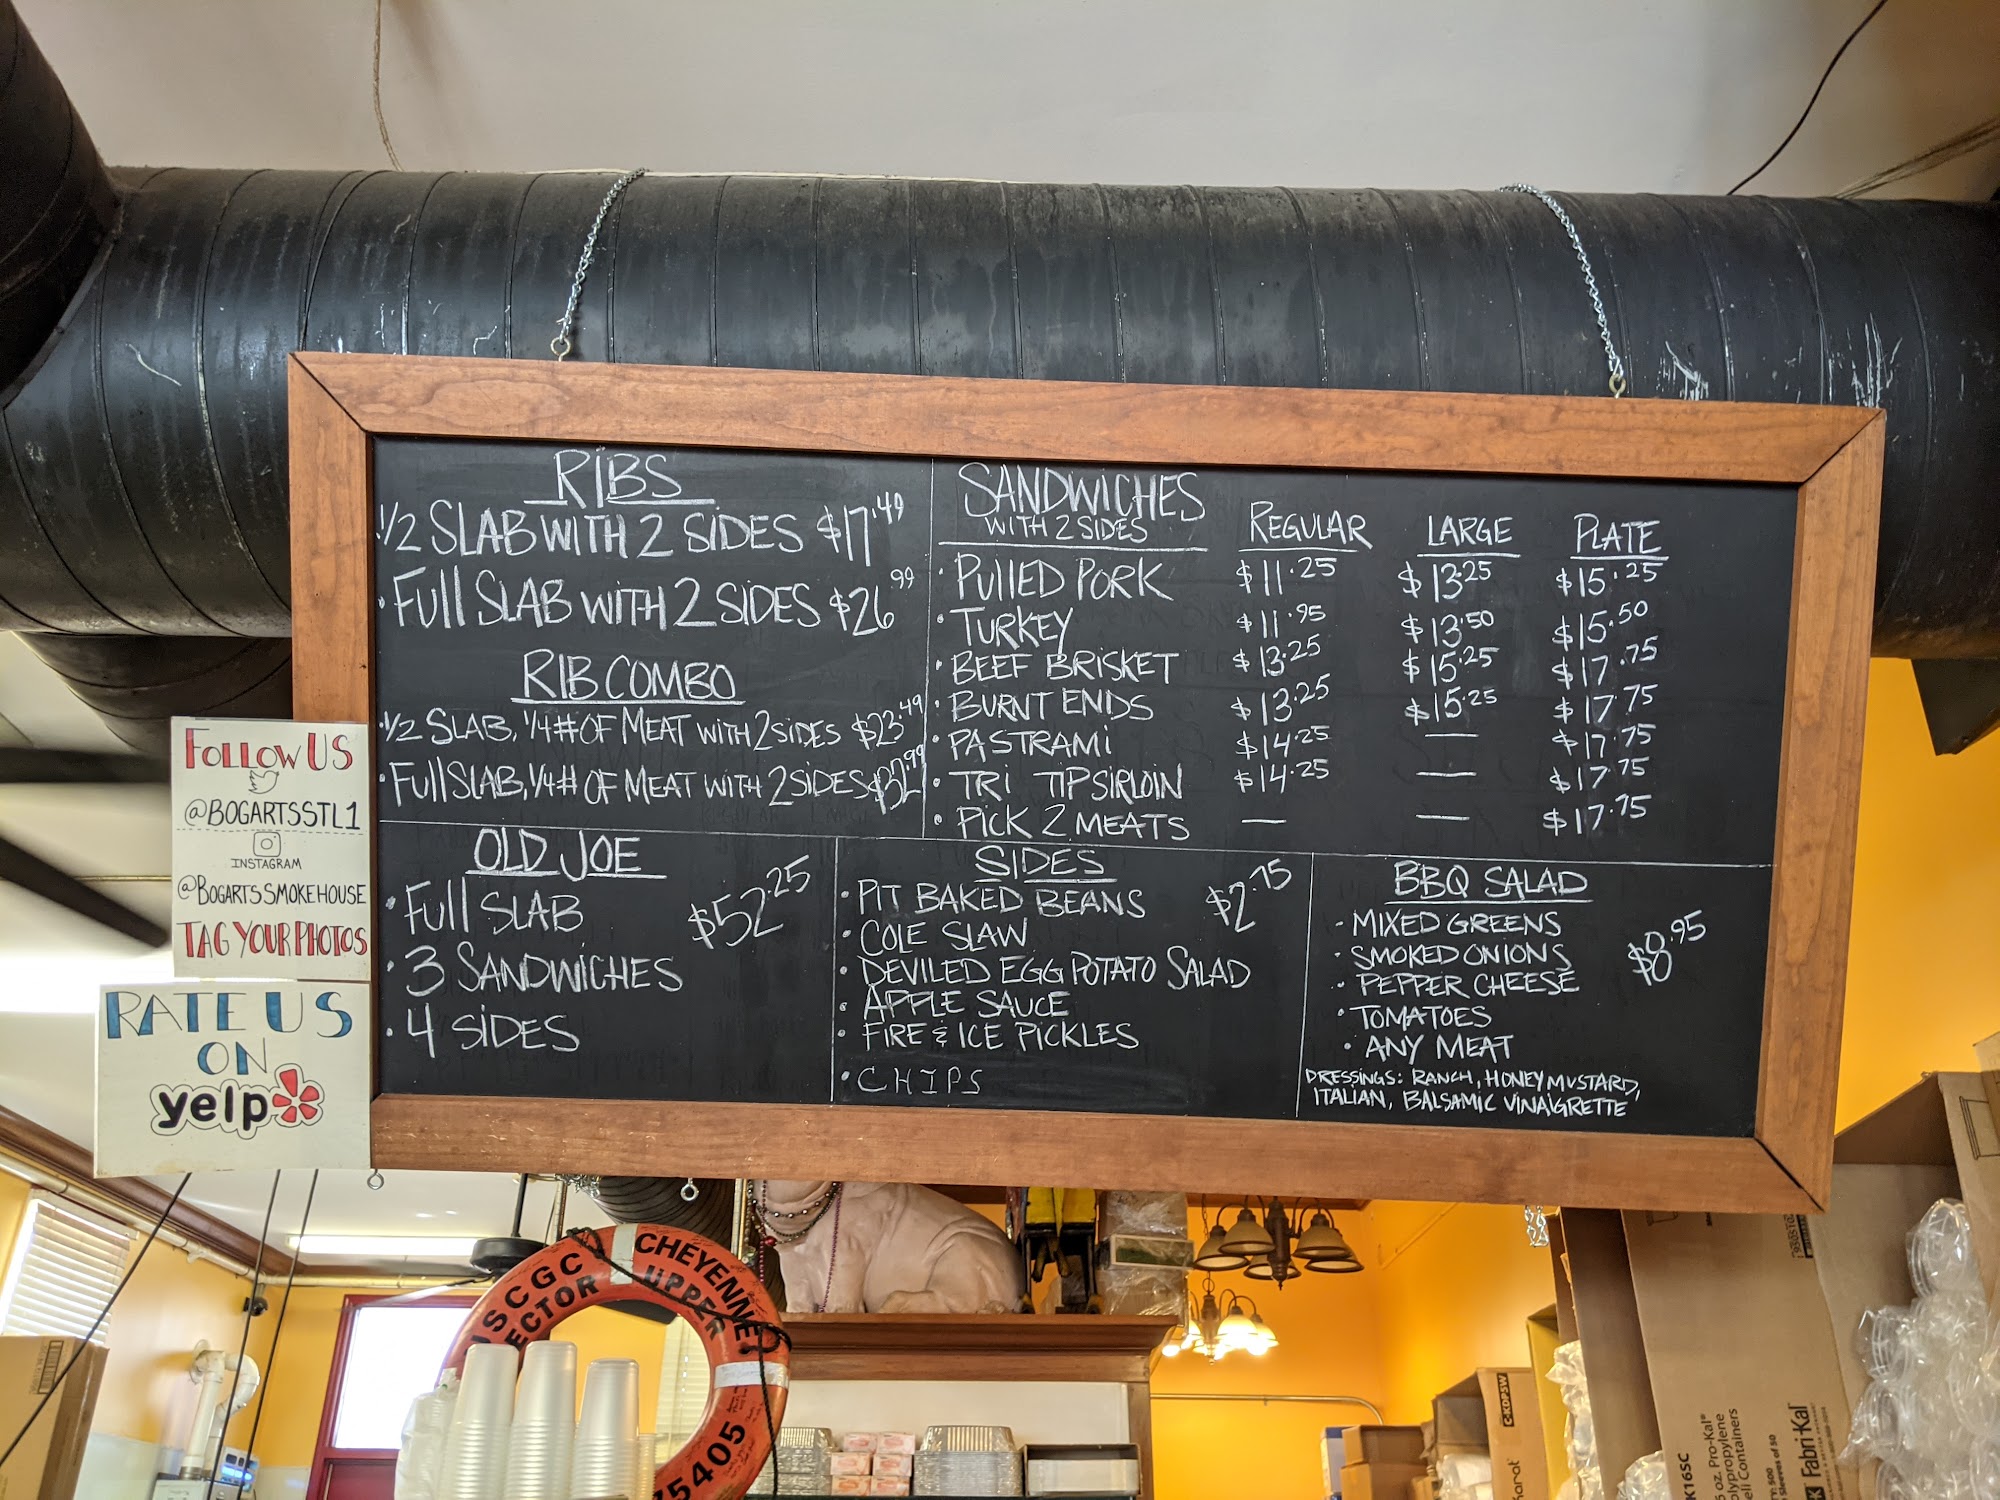 RIBS
· 1/2 SLAB WITH 2 SIDES $17.49
· FULL SLAB WITH 2 SIDES $26.99
RIB COMBO
· 1/2 SLAB, 1/4 # OF MEAT WITH 2 SIDES $23.49
· FULL SLAB, 1/4 # OF MEAT WITH 2 SIDES $32.99
SANDWICHES REGULAR LARGE PLATE
WITH 2 SIDES
· PULLED PORK $11.25 $13.25 $15.25
· TURKEY $11.95 $13.50 $15.50
· BEEF BRISKET $13.25 $15.25 $17.75
· BURNT ENDS $13.25 $15.25 $17.75
· PASTRAMI $14.25 — $17.75
· TRI TIP SIRLOIN $14.25 — $17.75
· PICK 2 MEATS — — $17.75
OLD JOE
· FULL SLAB $52.25
· 3 SANDWICHES
· 4 SIDES
SIDES
· PIT BAKED BEANS $2.75
· COLE SLAW
· DEVILED EGG POTATO SALAD
· APPLE SAUCE
· FIRE & ICE PICKLES
· CHIPS
BBQ SALAD
· MIXED GREENS
· SMOKED ONIONS $8.95
· PEPPER CHEESE
· TOMATOES
· ANY MEAT
DRESSINGS: RANCH, HONEY MUSTARD,
ITALIAN, BALSAMIC VINAIGRETTE
FOLLOW US
@BOGARTSSTL1
INSTAGRAM
@BOGARTSSMOKEHOUSE
TAG YOUR PHOTOS
RATE US
ON
yelp
USCGC CHEYENNE
SECTOR UPPER
75405
C-KDP5W
Karat
K16SC
oz. Pro-Kal®
olypropylene
eli Containers
TY: 500
Sleeves of 50
Fabri-Kal